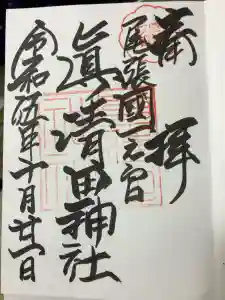 奉拝
尾張國一之宮
真清田神社
令和伍年十月廿一日